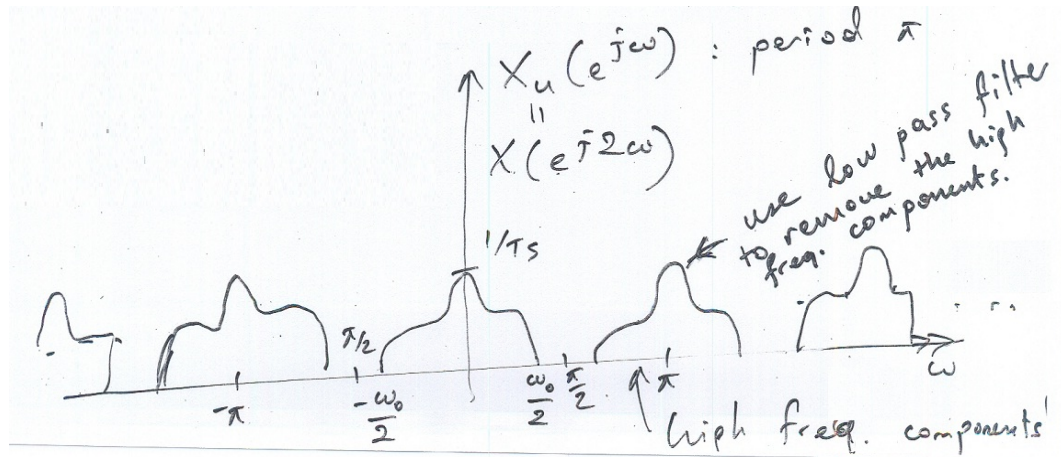 X_u(e^{jω}) : period π
=
X(e^{j2ω})
use low pass filter
to remove the high
freq. components.
1/Ts
π/2
-π
-ω₀/2
ω₀/2
π/2
π
. . . .
ω
high freq. components